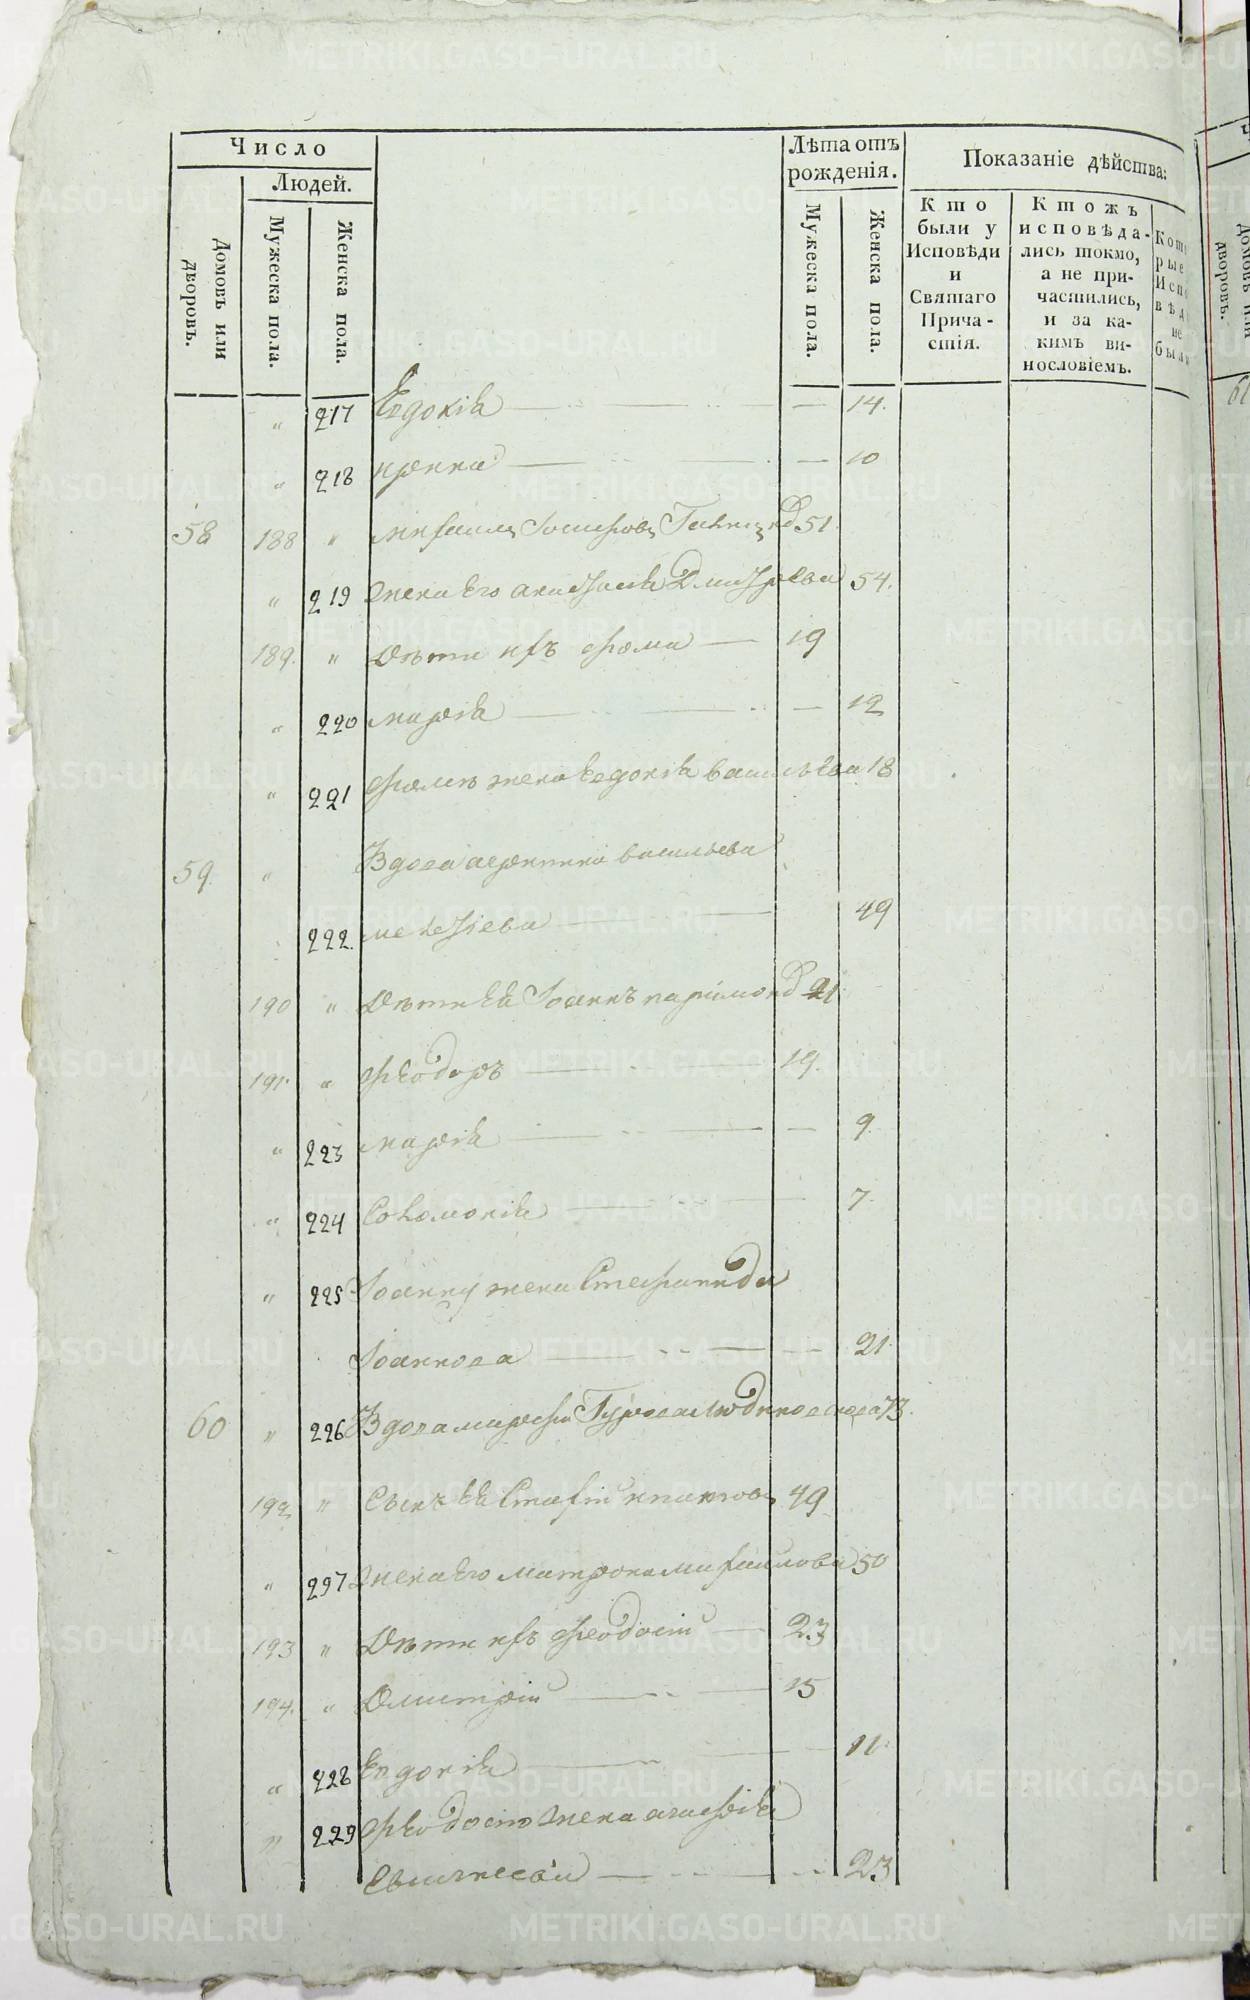 Число
Людей.
Домовъ или дворовъ.
Мужеска пола.
Женска пола.
Лѣта отъ рожденія.
Мужеска пола.
Женска пола.
Показаніе дѣйства:
Кто были у Исповѣди и Святаго Прича-стія.
Ктожъ исповѣда-лись токмо, а не при-частились, и за ка-кимъ ви-нословіемъ.
Кото рые Испо вѣд не был
„ 217 Евдокія 14.
„ 218 Ирина 10
58 188 „ Михаилъ 51
„ 219 Жена его Анастасія Дмитрева 54.
189. „ Дѣти ихъ Фома 19
„ 220 Марія 12
„ 221 Фомы жена Евдокія Васильева 18
59. „ Вдова Васильева
222. 49
190 „ Дѣти ея Іоаннъ 21
191. „ Феодоръ 19.
„ 223 Марія 9.
„ 224 Соломонія 7.
„ 225 Іоанну жена Стефанида
Іоаннова 21
60 „ 226 Вдова Марфа 73.
192 „ Сынъ ея 49
„ 227 Жена его Матрона Михаилова 50
193 „ Дѣти ихъ Феодосій 23
194. „ Дмитрій 15
„ 228 Евдокія 11.
„ 229 Феодосію жена Агафія
23
METRIKI.GASO-URAL.RU